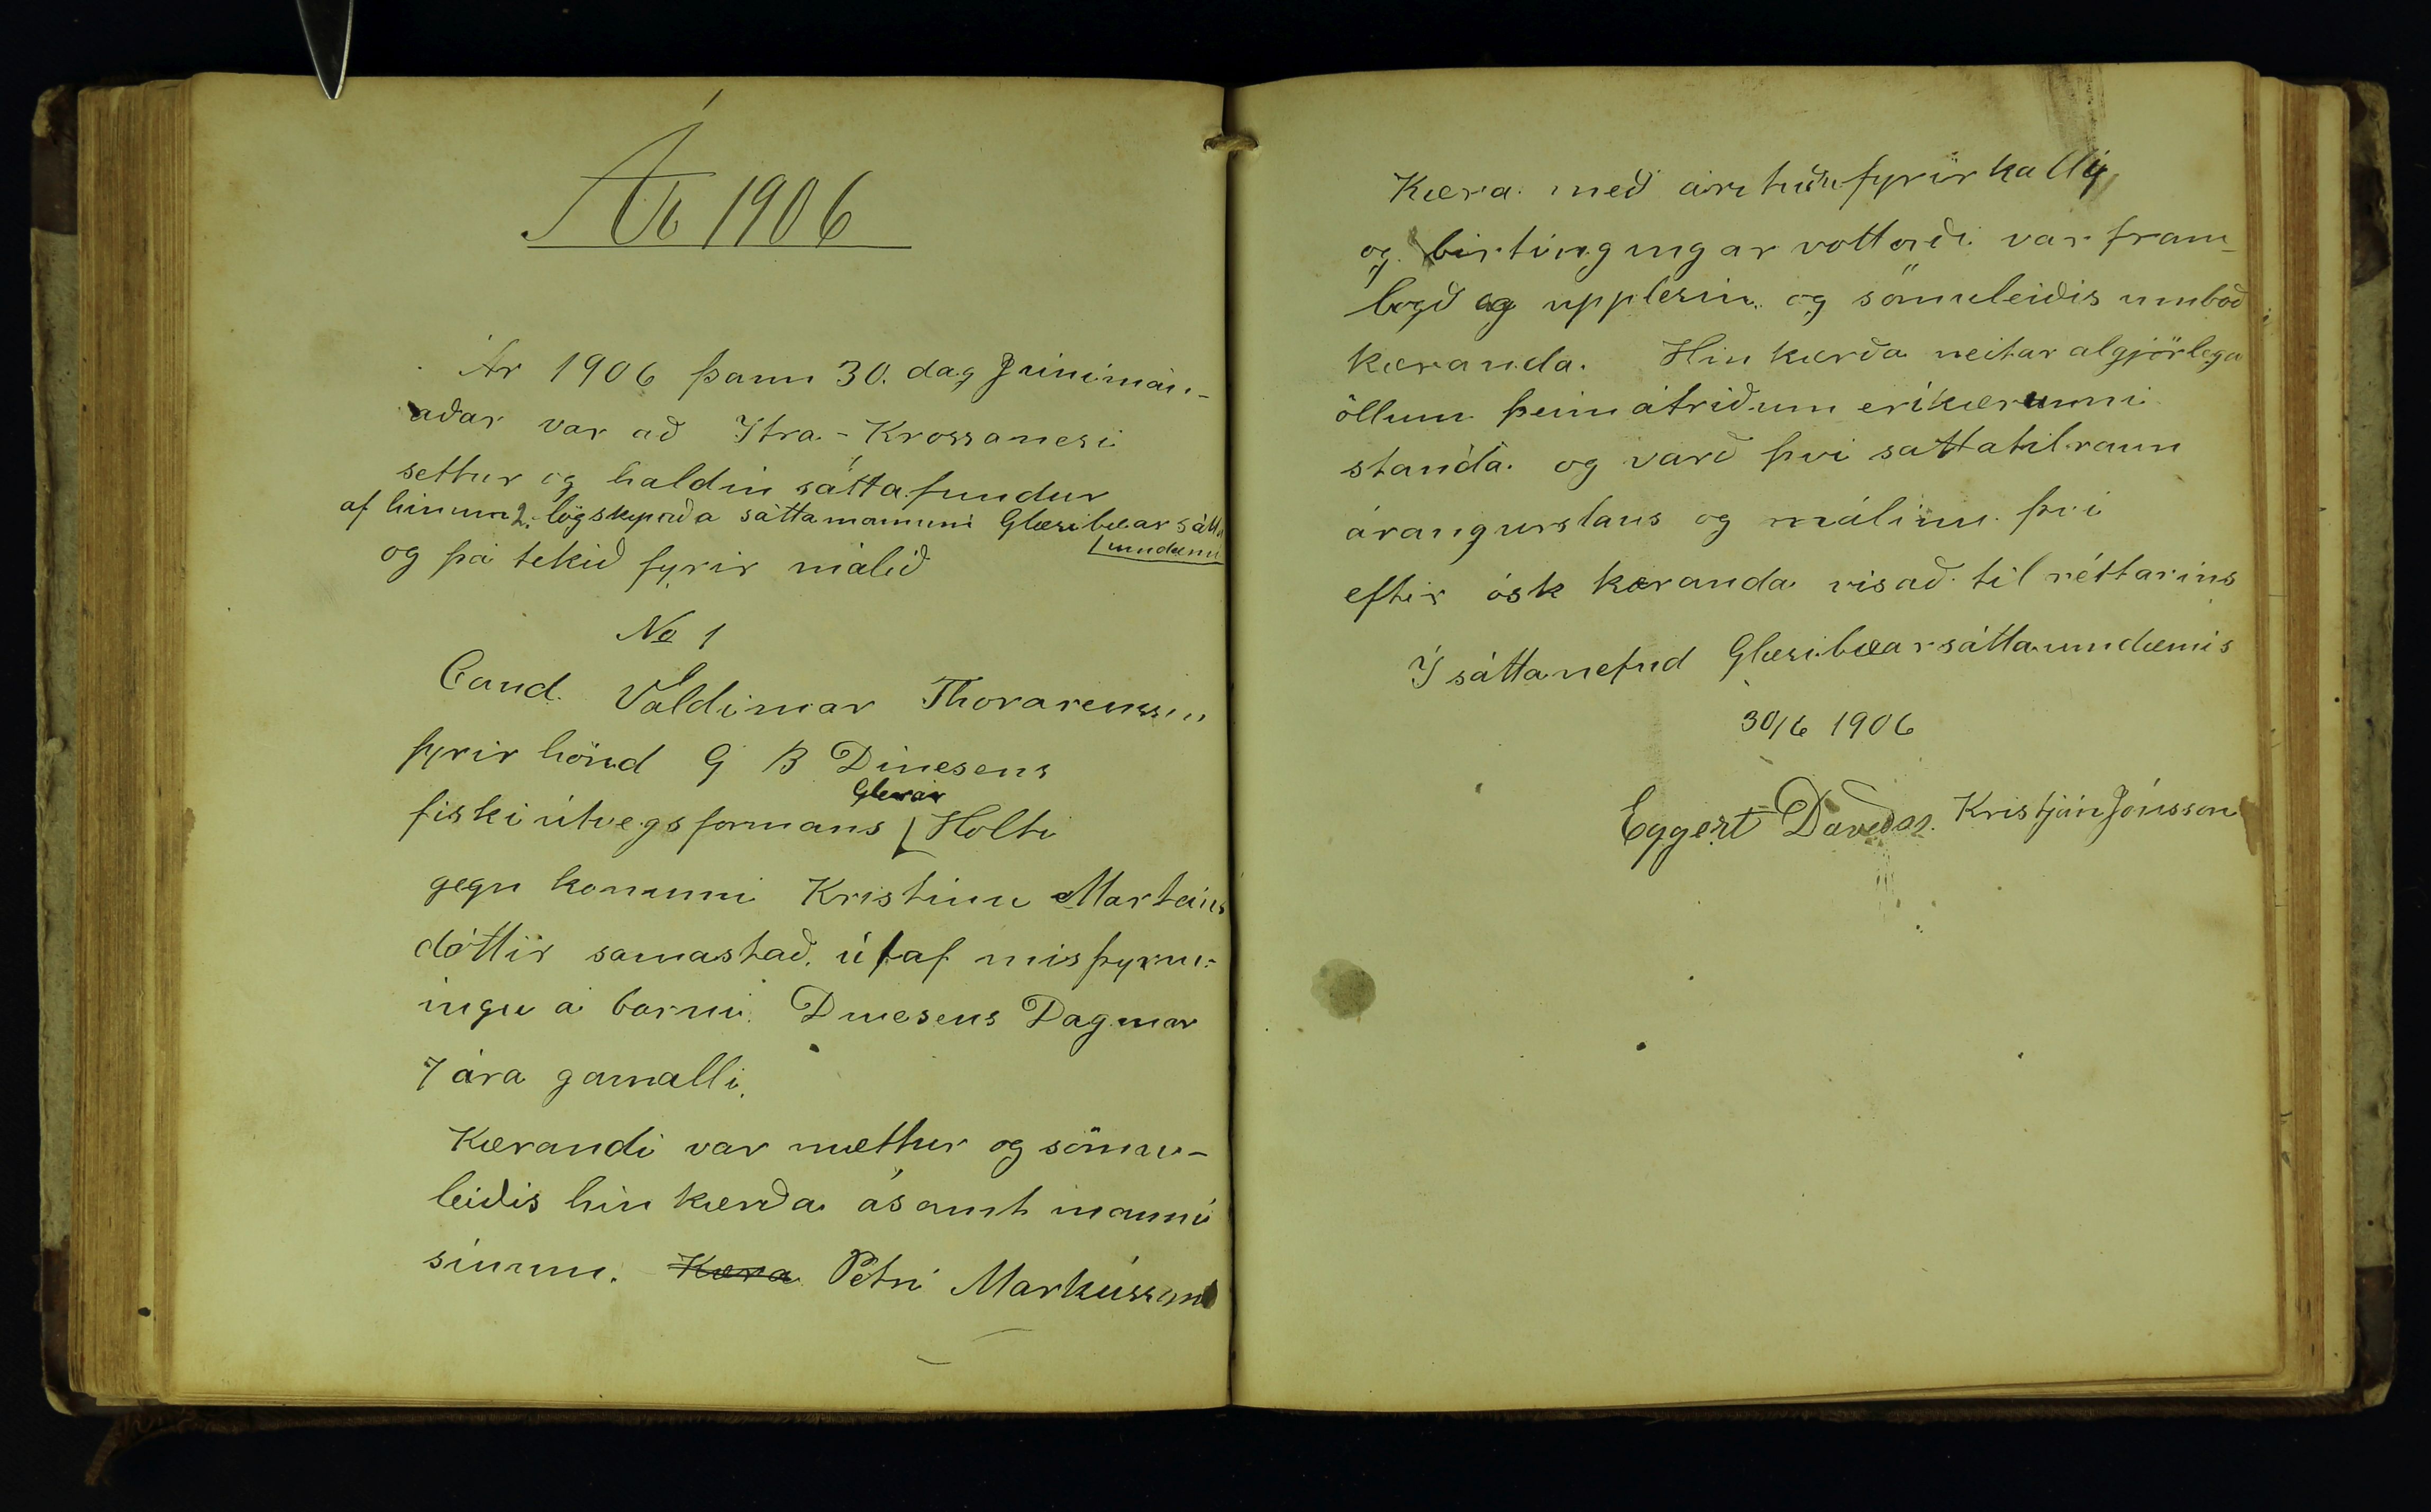 Ár 1906
Ár 1906 þann 30. dag Júnímán-
aðar var að Ytra-Krossanesi
settur og haldin sáttafundur
af hinum 2. lögskipaða sáttamönnum Glæsibæar sátta
umdæmi
og þá tekið fyrir málið
No 1
Cand. Valdimar Thorarensen
fyrir hönd G B Dinesens
Glerár
fiskiútvegsformans Holti
gegn konunni Kristínu Marteins
dóttir samastað, útaf misþyrm-
ingu á barni Dinesens Dagmar
7 ára gamalli.
Kærandi var mættur og sömu-
leiðis hin kærða ásamt manni
sínum. Kæra Petri Markússyni
Kæra með árituðu fyrirkalli
og birtingngar vottorði var fram-
logð og upplesin og sömuleiðis umboð
kæranda. Hin kærða neitar algjörlega
öllum þeim átriðum er í kærunni
standa og varð því sáttatilraun
árangurslaus og málinu því
eftir ósk kæranda vísað til réttarins
Í sáttanefnd Glæsibæarsáttaumdæmis
30/6 1906
Eggert Davíðss. Kristján Jónsson